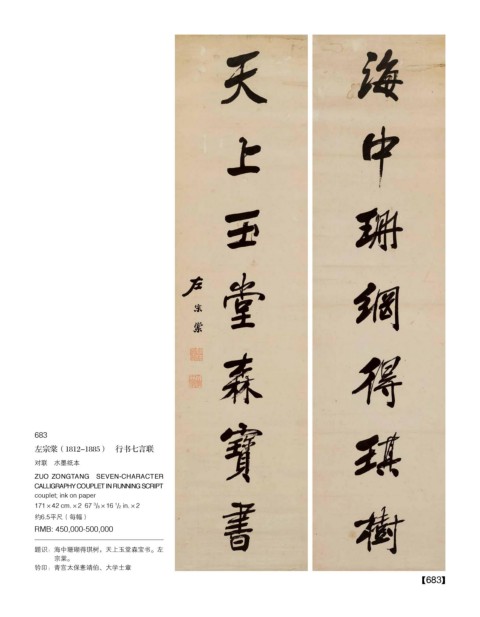 海中珊網得琪樹
天上玉堂森寶書
左宗棠
683
左宗棠（1812-1885） 行书七言联
对联 水墨纸本
ZUO ZONGTANG SEVEN-CHARACTER
CALLIGRAPHY COUPLET IN RUNNING SCRIPT
couplet; ink on paper
171 × 42 cm. × 2 67 3/8 × 16 1/2 in. × 2
约6.5平尺（每幅）
RMB: 450,000-500,000
题识：海中珊瑚得琪树，天上玉堂森宝书。左
宗棠。
钤印：青宫太保恪靖伯、大学士章
【683】